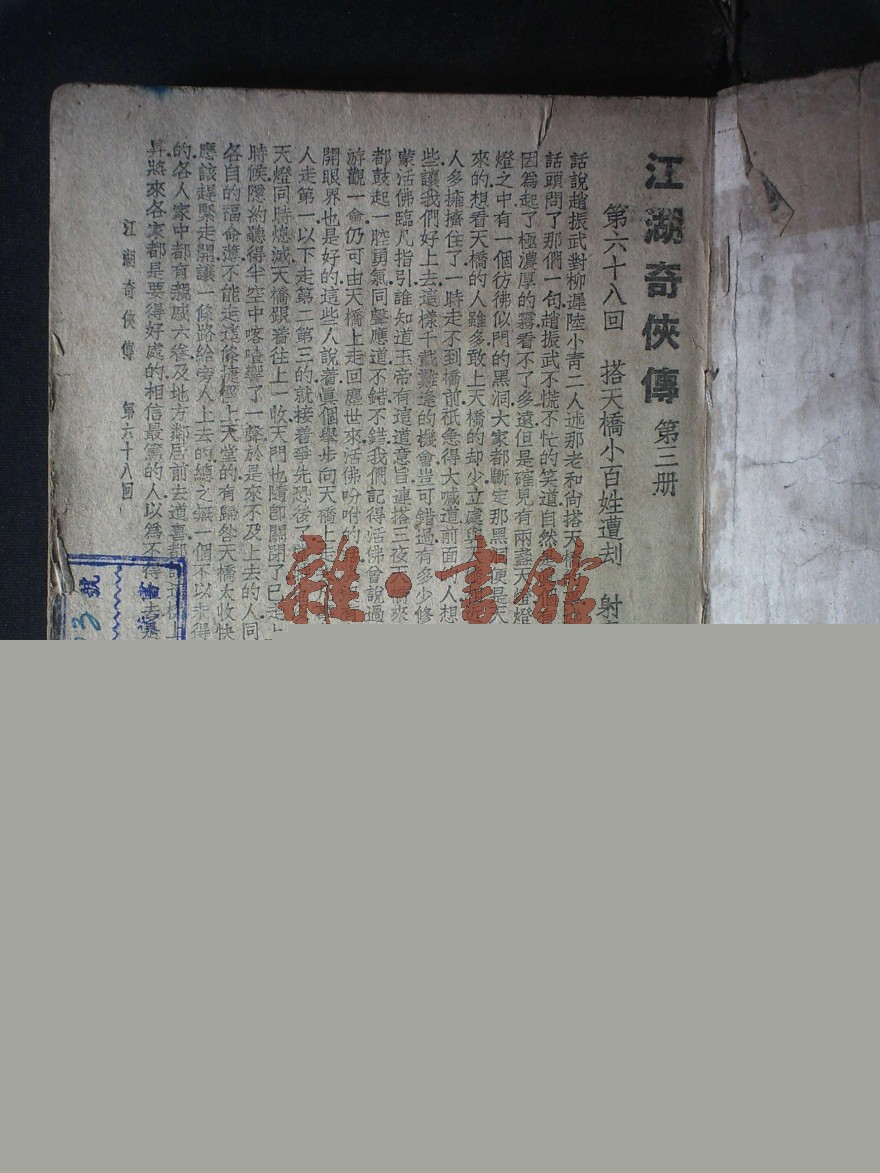 江湖奇俠傳 第三册
第六十八回 搭天橋小百姓遭刦 射
話說趙振武對柳遲陸小青二人述那老和尚搭天橋
話頭問了那們一句趙振武不慌不忙的笑道自然
因爲起了極濃厚的霧看不了多遠但是確見有兩盞天燈燈
燈之中有一個彷彿似門的黑洞大家都斷定那黑洞便是天
來的想看天橋的人雖多敢上天橋的却少立處與天
人多擁擠住了一時走不到橋前祇急得大喊道前面的人想
些讓我們好上去這樣千載難逢的機會豈可錯過有多少修
蒙活佛臨凡指引誰知道玉帝有這道意旨連搭三夜天橋來
都鼓起一腔勇氣同聲應道不錯不錯我們記得活佛曾說過
游觀一會仍可由天橋上走回塵世來活佛吩咐的
開眼界也是好的這些人說着眞個舉步向天橋上走
人走第一以下走第二第三的就接着爭先恐後了
天燈同時熄滅天橋跟着往上一收天門也隨卽關閉了已走上
時候隱約聽得半空中喀喳響了一聲於是來不及上去的人同
各自的福命薄不能走這條捷徑上天堂的有歸咎天橋太收快
應該趕緊走開讓一條路給旁人上去的總之無一個不以未得
的各人家中都有親戚六眷及地方鄰居前去道喜都說這橋上
昇將來各家都是要得好處的相信最篤的人以爲不得上去
江湖奇俠傳 第六十八回
書
號
雜·書館